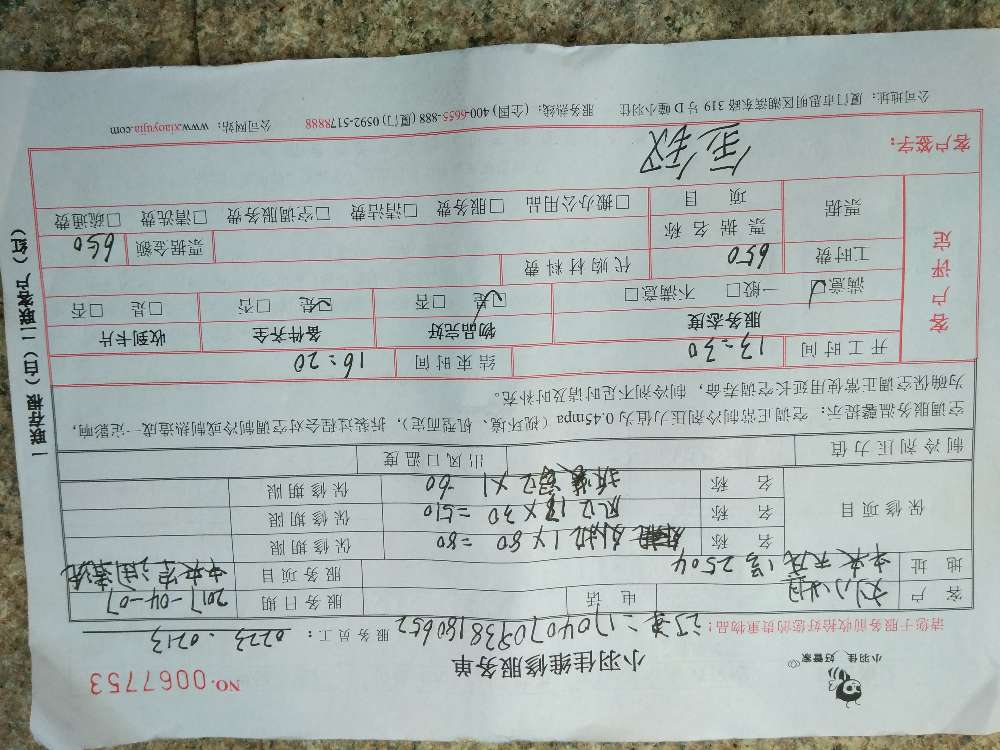 小羽佳 好管家
小羽佳维修服务单
NO.0067753
请您于服务前收拾好您的贵重物品:
订单:1704070938180652
服务员工: 0223 0213
客户 刘小姐 电话 服务日期 2017-04-07
地址 中央天成1号2504 服务项目 中央空调清洗
保修项目 名称 外机1×80=80 保修期限
名称 风口17×30=510 保修期限
名称 拆装风口×1 60 保修期限
制冷剂压力值 出风口温度
空调服务温馨提示:空调正常制冷剂压力值为0.45mpa(视环境、机型而定),拆装过程会对空调制冷或制热造成一定影响,
为确保空调正常使用延长空调寿命,制冷剂不足时请及时补充。
客户评定
开工时间 13:30 结束时间 16:20
服务态度 物品完好 备件齐全 收到卡片
满意☑ 一般□ 不满意□ 是☑ 否□ 是☑ 否□ 是□ 否□
工时费 650 代购材料费
票据 票据名称 票据金额 650
项目 □搬办公用品 □服务费 □清洁费 □空调服务费 □清洗费 □疏通费
客户签字:
公司地址:厦门市思明区湖滨东路319号D幢小羽佳 服务热线:(全国)400-6655-888(厦门)0592-5178888 公司网站:www.xiaoyujia.com
一联存根(白)二联客户(红)